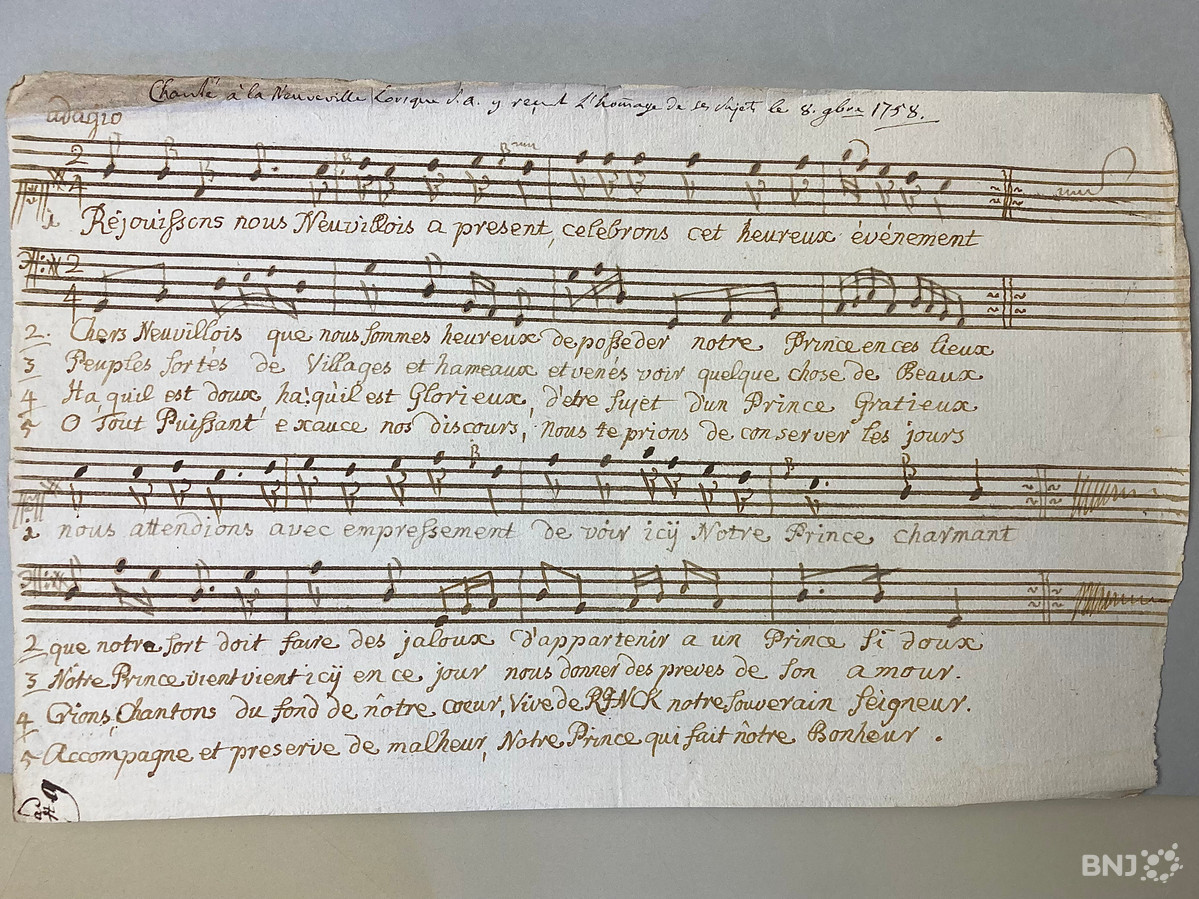 Chanté à la Neuveville Lorsque S. A. y reçut L'homage de ses Sujets le 8. 9bre 1758.
adagio
2
4
1 Réjouissons nous Neuvillois a present, celebrons cet heureux événement
2
4
2. Chers Neuvillois que nous sommes heureux de posseder notre Prince en ces lieux
3 Peuples sortés de Villages et hameaux et venés voir quelque chose de Beaux
4 Ha qu'il est doux ha: qu'il est Glorieux, d'etre sujet d'un Prince Gratieux
5 O Tout Puissant exauce nos discours, Nous te prions de conserver les jours
nous attendions avec empressement de voir icÿ Notre Prince charmant
2 que notre sort doit faire des jaloux d'appartenir a un Prince si doux
3 Nôtre Prince vient vient icÿ en ce jour nous donner des preves de son amour.
4 Crions, Chantons du fond de nôtre coeur, Vive de RINCK notre souverain seigneur.
5 Accompagne et preserve de malheur, Notre Prince qui fait nôtre Bonheur.
BNJ